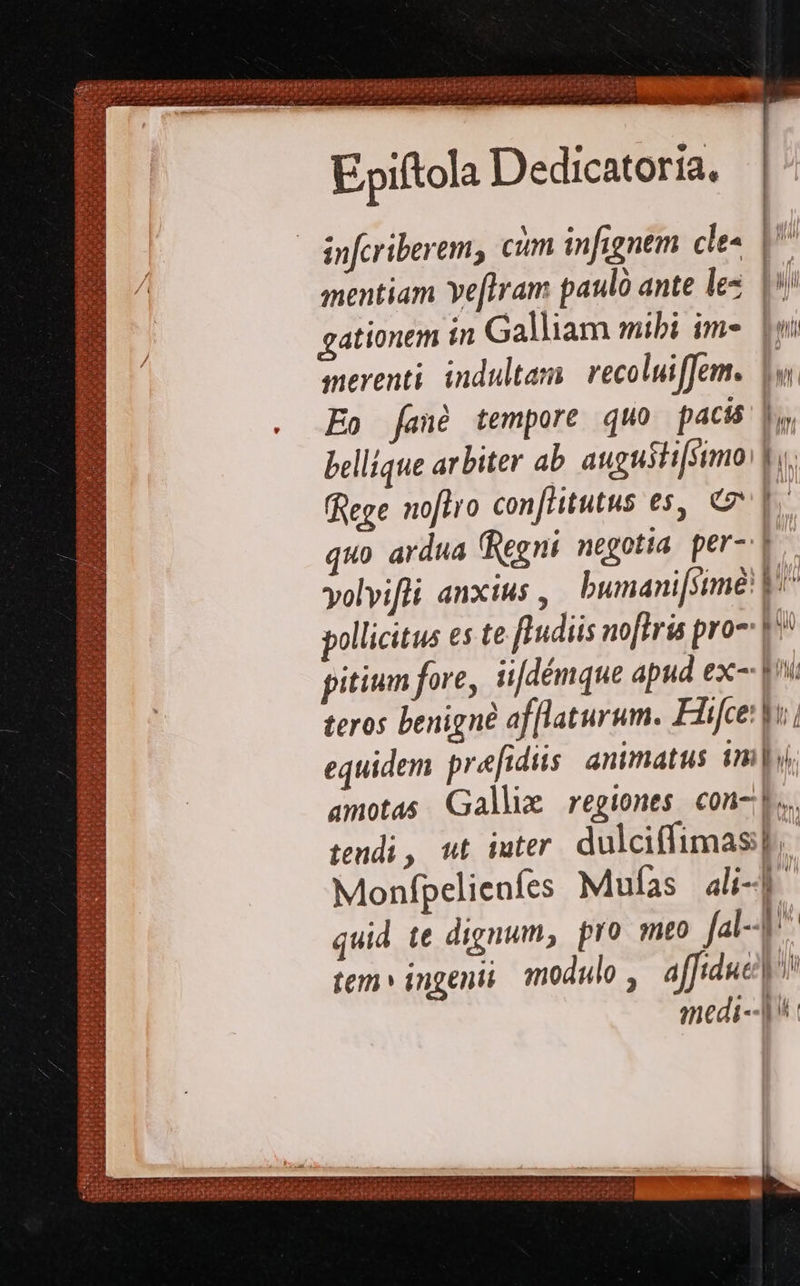 Epiſtola Dedicatoria.
inſcriberem, cùm inſignem cle-
mentiam veſtram paulò ante le-
gationem in Galliam mihi im-
merenti indultam recoluiſſem.
Eo ſanè tempore quo pacis
bellique arbiter ab auguſtiſsimo
Rege noſtro conſtitutus es, &
quo ardua Regni negotia per-
volviſti anxius, humaniſsimè
pollicitus es te ſtudiis noſtris pro-
pitium fore, iiſdémque apud ex-
teros benignè afflaturum. Hiſce
equidem præſidiis animatus im
amotas Galliæ regiones con-
tendi, ut inter dulciſſimas
Monſpelienſes Muſas ali-
quid te dignum, pro meo ſal-
tem ingenii modulo, aſſidue
medi-